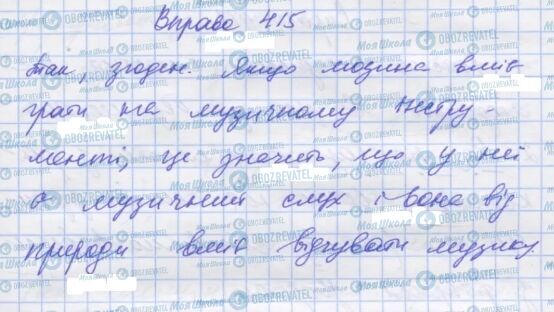 Вправа 415
Так, згоден. Якщо людина вміє
грати на музичному інстру-
менті, це значить, що у неї
є музичний слух і вона від
природи вміє відчувати музику.